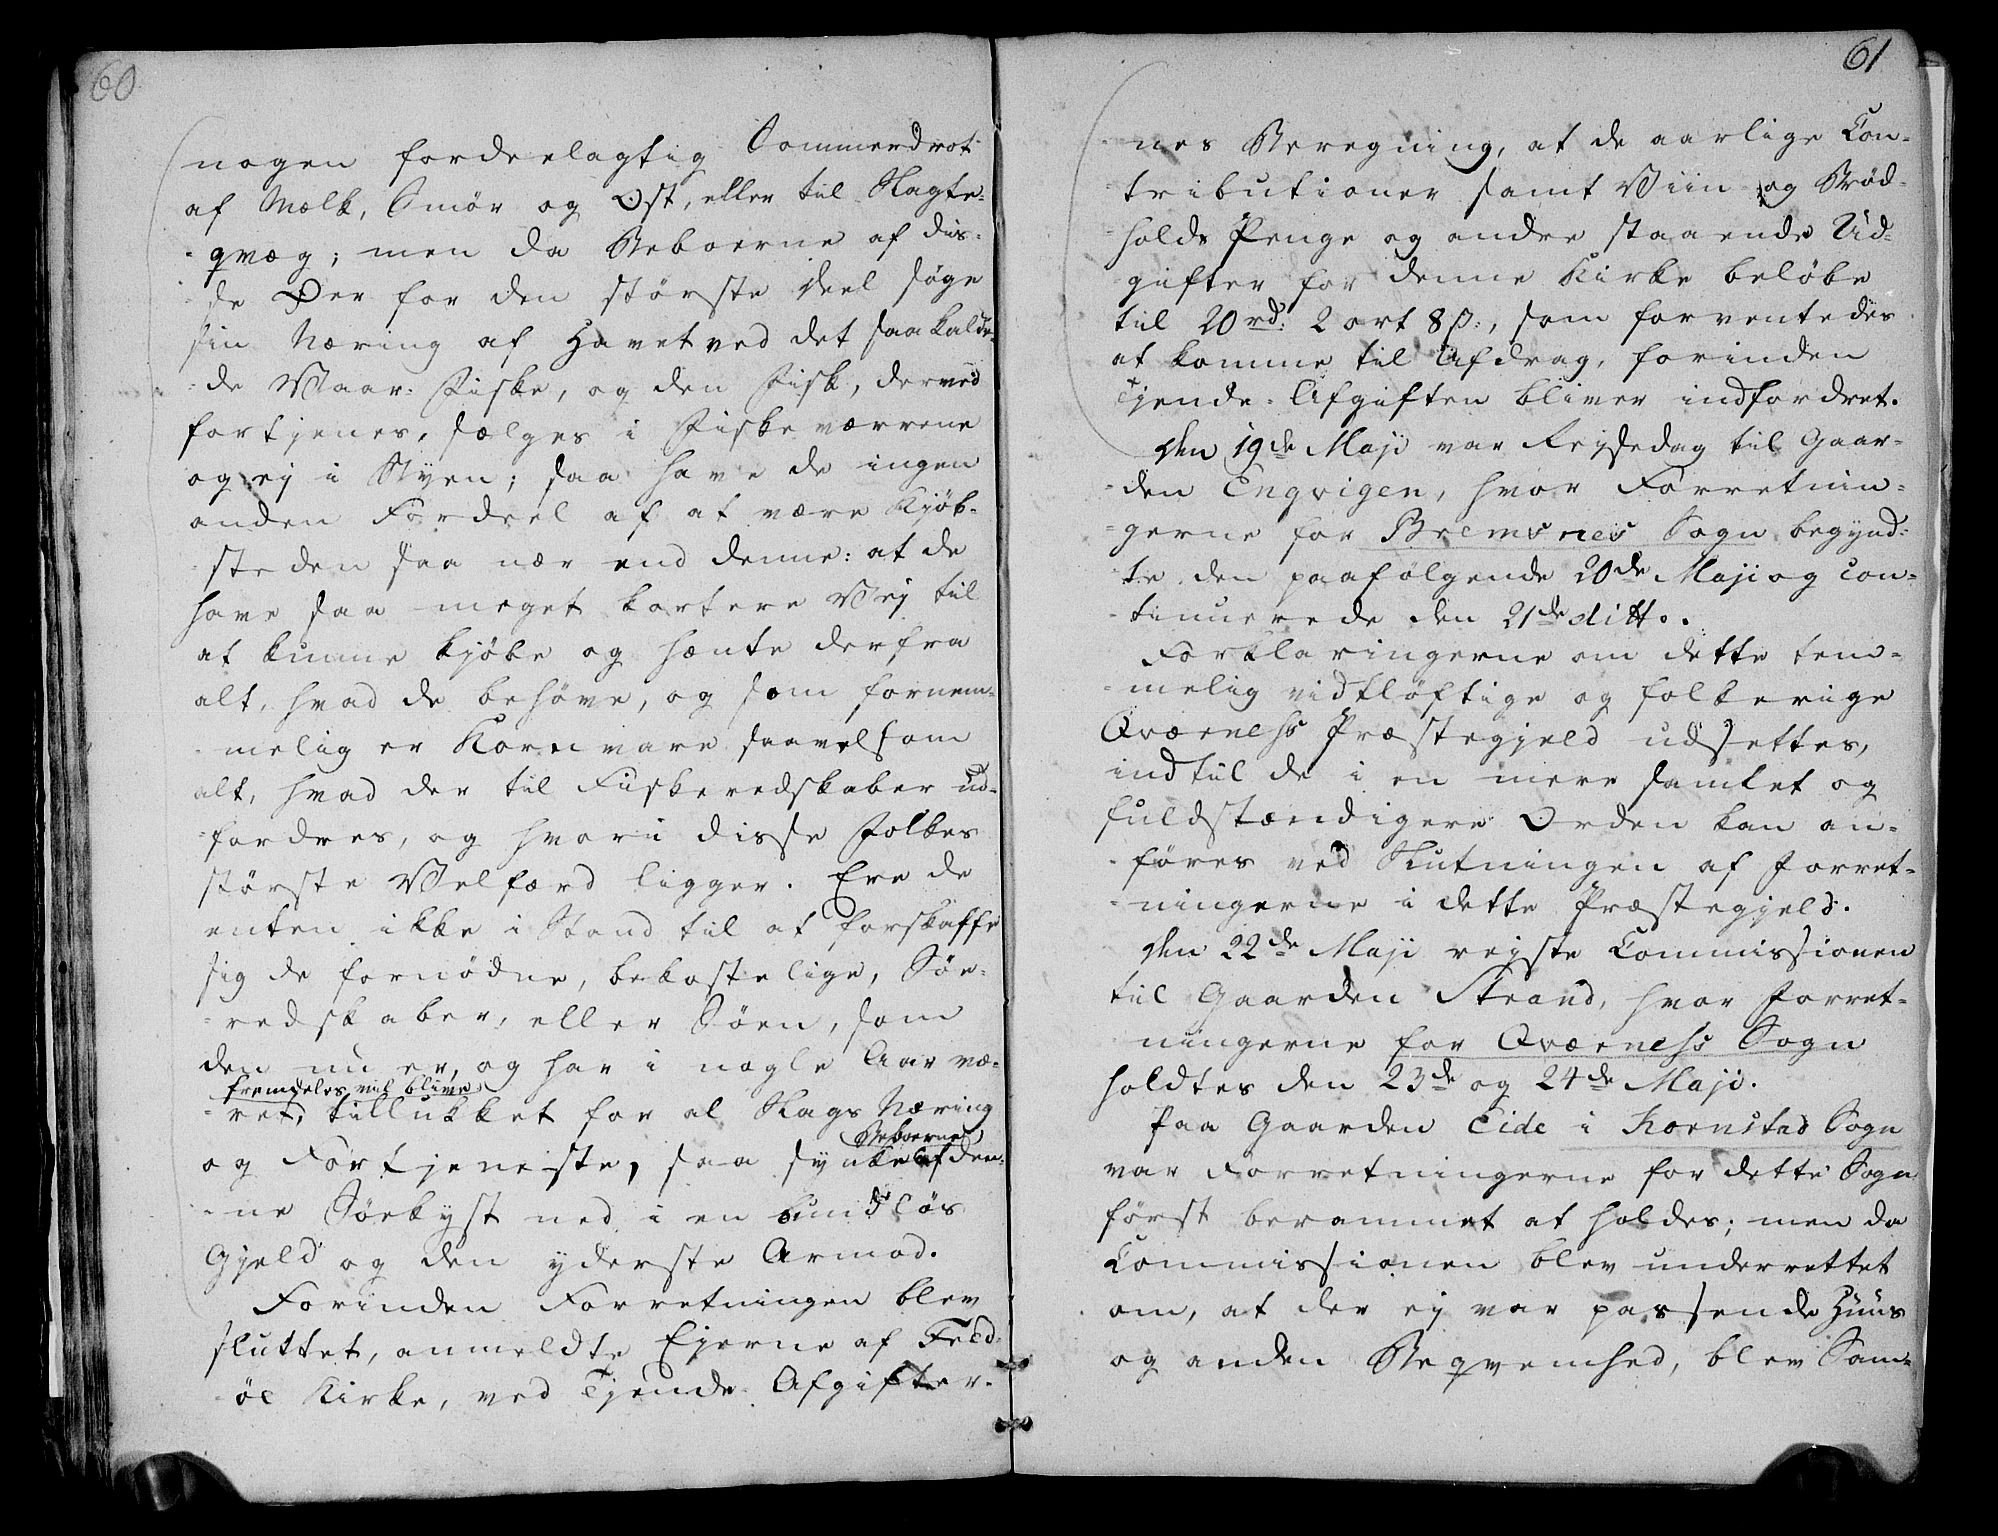 60
nogen fordeelagtig Sommerdrot
af Mælk, Smør og Ost, eller til Slagte-
qvæg; men da Beboerne af dis-
se Øer for den største Deel søge
sin Næring af Havet ved det saa kald-
de Vaar-Fiske, og den Fisk, derved
fortjenes, sælges i Fiskeværrene
og ej i Byen; saa have de ingen
anden Fordeel af at være Kjøb-
steden saa nær end denne: at de
have saa meget kortere Vej til
at kunne kjøbe og hente derfra
alt, hvad de behøve, og som fornem-
melig er Kornvare saavelsom
alt, hvad der til Fiskeredskaber ud-
fordres, og hvori disse Folkes
største Velfærd ligger. Ere de
enten ikke i Stand til at forskaffe
sig de fornødne, bekostelige, Søe-
redskaber, eller Søen, som
den nu er, og har i nogle Aar væ-
fremdeles vil blive
ret, tillukket for al Slags Næring
Beboerne
og Fortjeneste, saa synke af den-
ne Søekyst ned i en bundløs
Gjeld og den yderste Armod.
Forinden Forretningen blev
sluttet, anmeldte Ejerne af Fred-
øe Kirke, ved Tjende-Afgifter-
61
nes Beregning, at de aarlige Con-
tributioner samt Viin og Brød-
holds Penge og andre staaende Ud-
gifter for denne Kirke beløbe
til 20 rd: 2 ort 8 s:, som forventedes
at komme til Afdrag, forinden
Tjende-Afgiften bliver indfordret.
Den 19de Maji var Rejsedag til Gaar-
den Engvigen, hvor Forretnin-
gerne for Bremsnes Sogn begynd-
te den paafølgende 20de Maji og con-
tinuerede den 21de ditto.
Forklaringerne om dette tem-
melig vidtløftige og folkerige
Qværness Præstegjeld udsettes,
indtil de i en mere samlet og
fuldstændigere Orden kan an-
føres ved Slutningen af Forret-
ningerne i dette Præstegjeld.
Den 22de Maji rejste Commissionen
til Gaarden Strand, hvor Forret-
ningerne for Qværness Sogn
holdtes den 23de og 24de Maji.
Paa Gaarden Eide i Kornstad Sogn
var Forretningerne for dette Sogn
først berammet at holdes; men da
Commissionen blev underrettet
om, at der ej var passende Huus
og anden Beqvemhed, blev Sam-